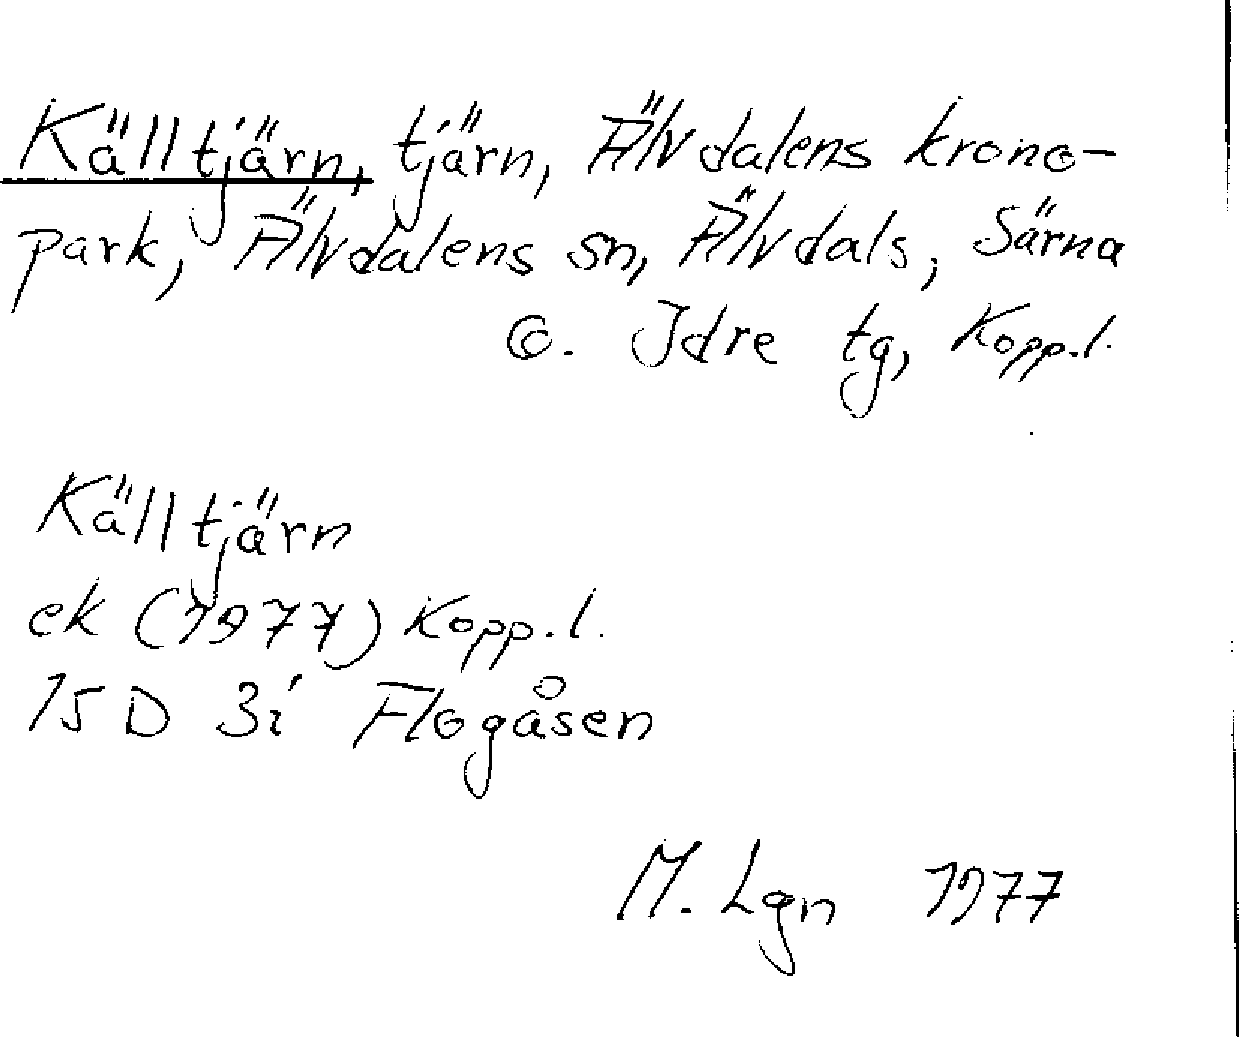 Källtjärn, tjärn, Älvdalens krono-
park, Älvdalens sn, Älvdals, Särna
o. Idre tg, Kopp.l.
Källtjärn
ek (1977) Kopp.l.
15 D 3i Flogåsen
M. Lgn 1977